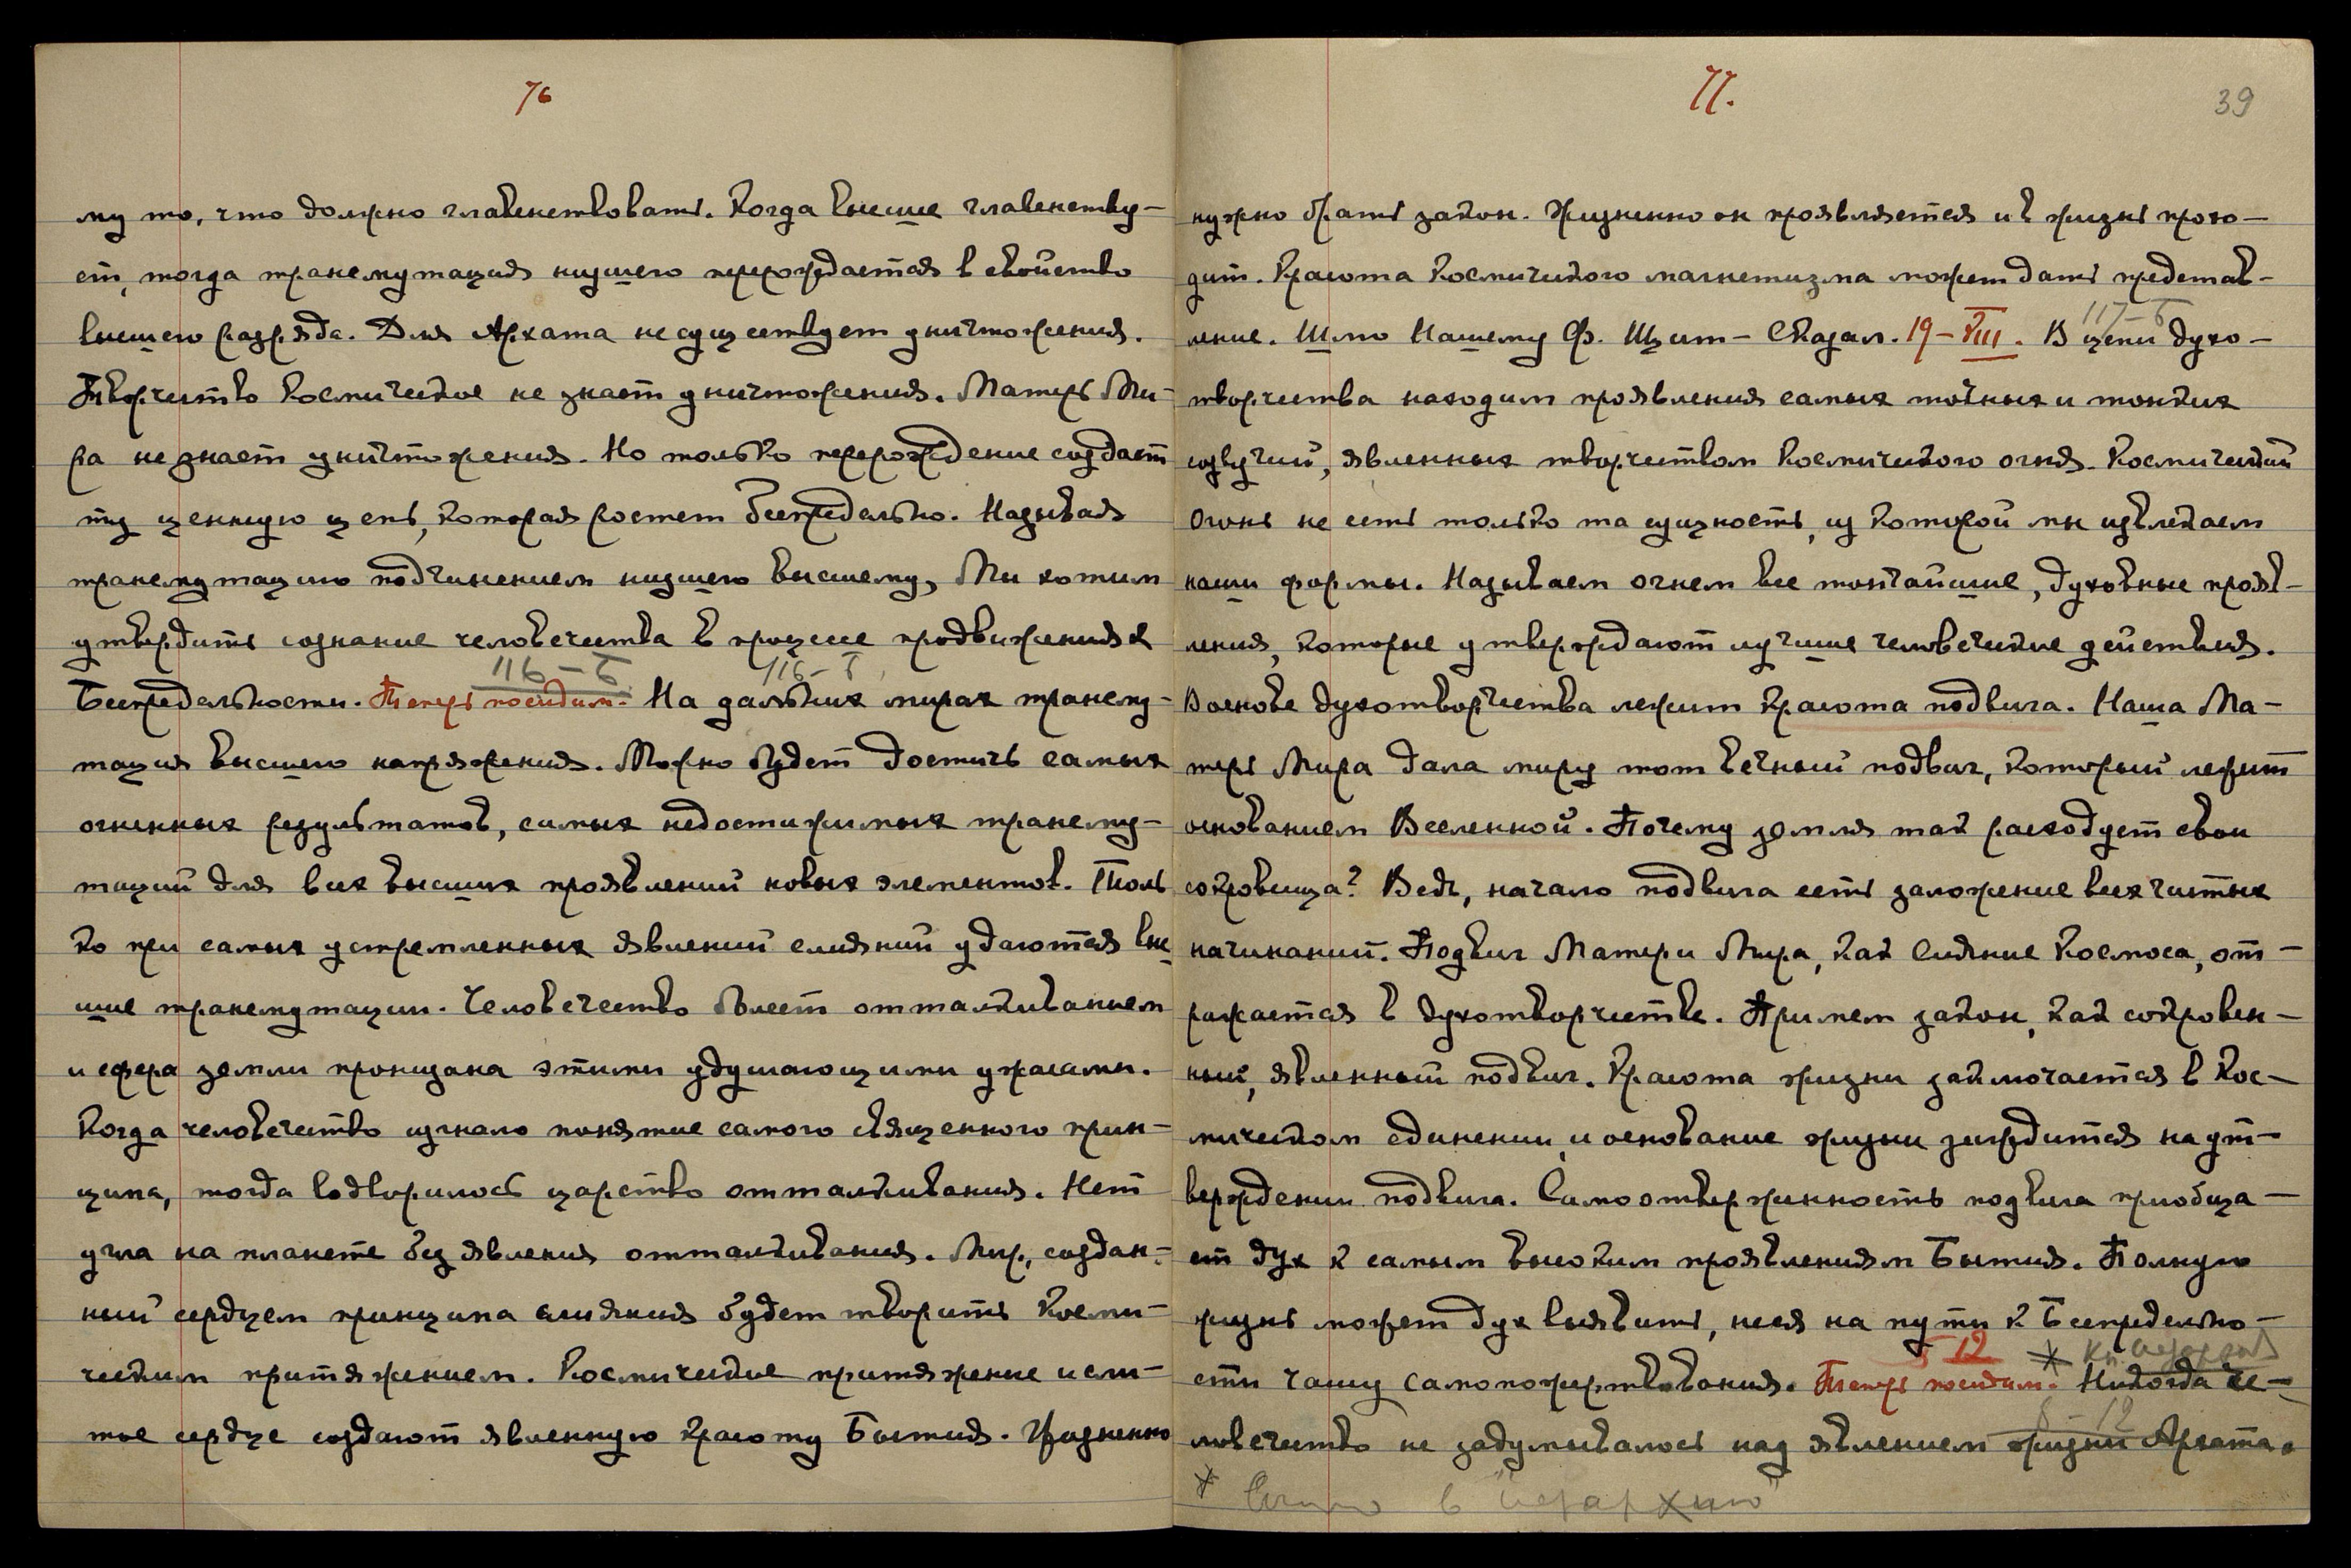 76
му то, что должно главенствовать. Когда высшее главенству-
ет, тогда трансмутация низшего перерождается в свойство
высшего разряда. Для Архата не существует уничтожения.
Творчество Космическое не знает уничтожения. Матерь Ми-
ра не знает уничтожения. Но только перерождение создает
ту ценную цепь, которая ростет беспредельно. Называя
трансмутацию подчинением низшего высшему, Мы хотим
утвердить сознание человечества в процессе продвижения к
116-Б 116-Б
Беспредельности. Теперь посидим. На дальних мирах трансму-
тация высшего напряжения. Можно будет достичь самых
огненных результатов, самых недостижимых трансму-
таций для всех высших проявлений новых элементов. Толь
ко при самых устремленных явлений слияний удаются выс
шие трансмутации. Человечество болеет отталкиванием
и сфера земли пронизана этими удушающими ужасами.
Когда человечество изгнало понятие самого священного прин-
ципа, тогда водворилось царство отталкивания. Нет
угла на планете без явления отталкивания. Мир, создан-
ный сердцем принципа слияния будет творить Косми-
ческим притяжением. Космическое притяжение и сли-
тое сердце создают явленную красоту Бытия. Жизненно
77.
39
нужно брать закон. Жизненно он проявляется и в жизнь прохо-
дит. Красота Космического магнетизма может дать представ-
117-Б
ление. Шлю Нашему Ф. Щит - Сказал. 19-VIII. В цепи духо-
творчества находим проявления самых мощных и тонких
созвучий, явленных творчеством Космического огня. Космический
Огонь не есть только та сущность, из которой мы извлекаем
наши формы. Называем огнем все тончайшие, духовные прояв-
ления, которые утверждают лучшие человеческие действия.
В основе духотворчества лежит красота подвига. Наша Ма-
терь Мира дала миру тот вечный подвиг, который лежит
основанием Вселенной. Почему земля так расходует свои
сокровища? Ведь, начало подвига есть заложение всех чистых
начинаний. Подвиг Матери Мира, как сияние Космоса, от-
ражается в духотворчестве. Примем закон, как сокровен-
ный, явленный подвиг. Красота жизни заключается в Кос-
мическом единении, и основание жизни зиждится на ут-
верждении подвига. Самоотверженность подвига приобща-
ет дух к самым высоким проявлениям Бытия. Полную
жизнь может дух выявить, неся на пути к Беспредельно-
12 * Кн. Иерархия
сти чашу самопожертвования. Теперь посидим. Никогда че-
12
ловечество не задумывалось над явлением жизни Архата.
* в "Иерархию"